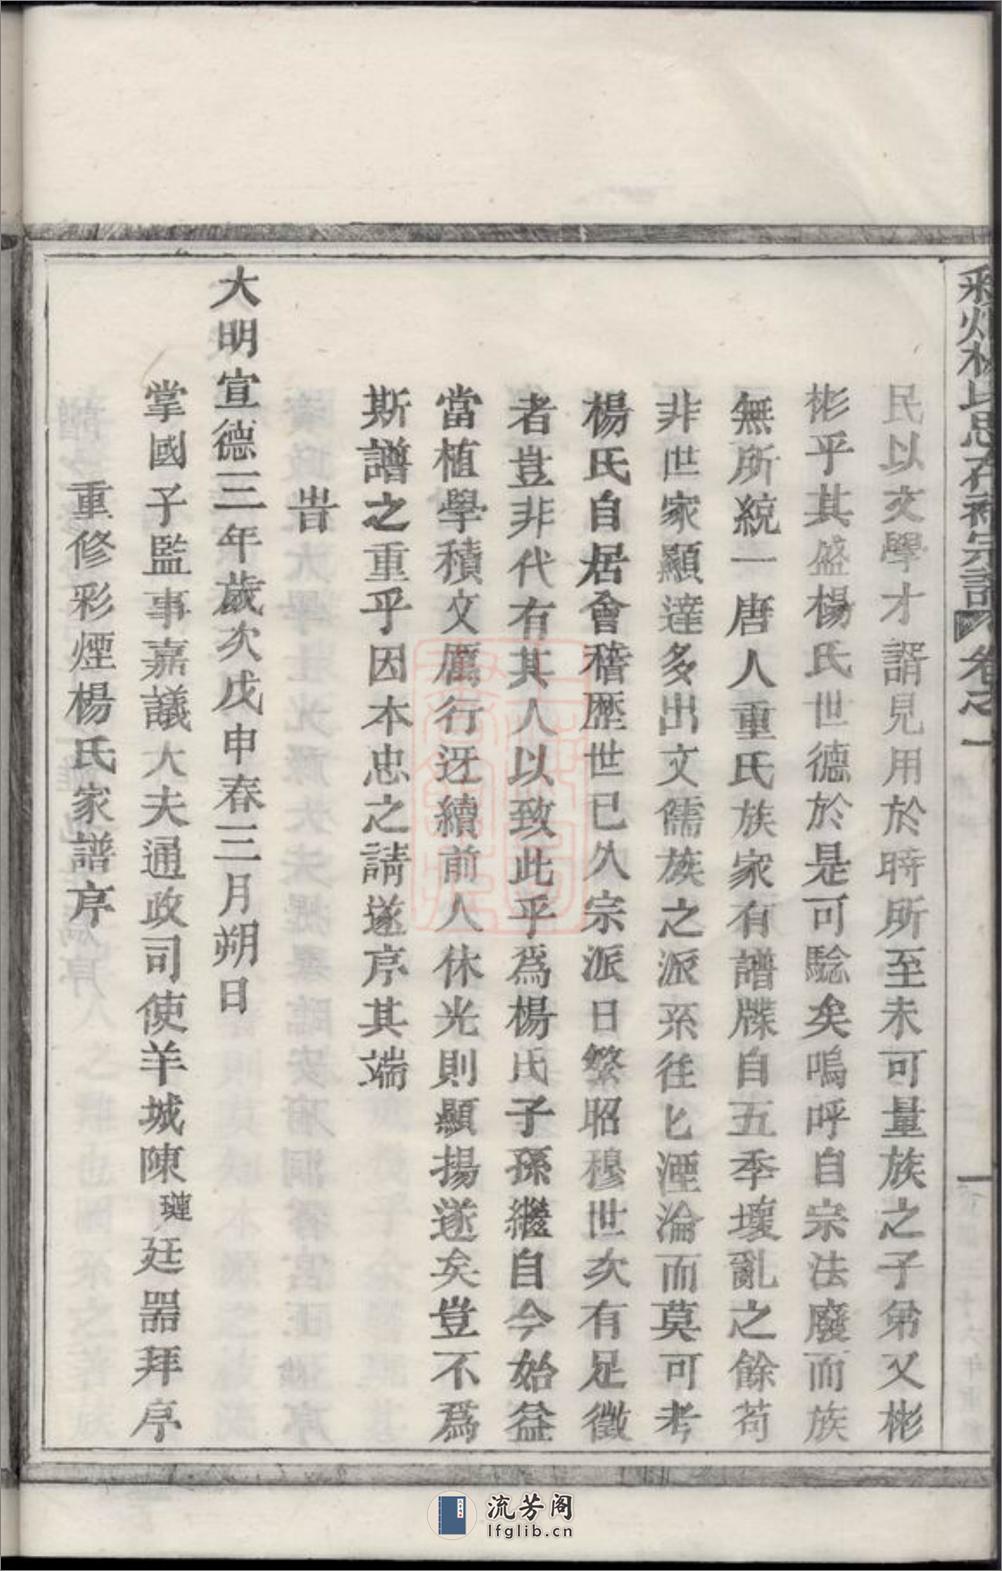 民以文學才諝見用於時所至未可量族之子弟又彬
彬乎其盛楊氏世德於是可騐矣嗚呼自宗法廢而族
無所統一唐人重氏族家有譜牒自五季壞亂之餘苟
非世家顯達多出文儒族之派系往匕湮淪而莫可考
楊氏自居會稽歷世已久宗派日繁昭穆世次有足徵
者豈非代有其人以致此乎爲楊氏子孫繼自今始益
當植學積文厲行迓續前人休光則顯揚遂矣豈不爲
斯譜之重乎因本忠之請遂序其端
旹
大明宣德三年歲次戊申春三月朔日
掌國子監事嘉議大夫通政司使羊城陳璉廷器拜序
重修彩煙楊氏家譜序
卷之一
一
流芳阁
lfglib.cn